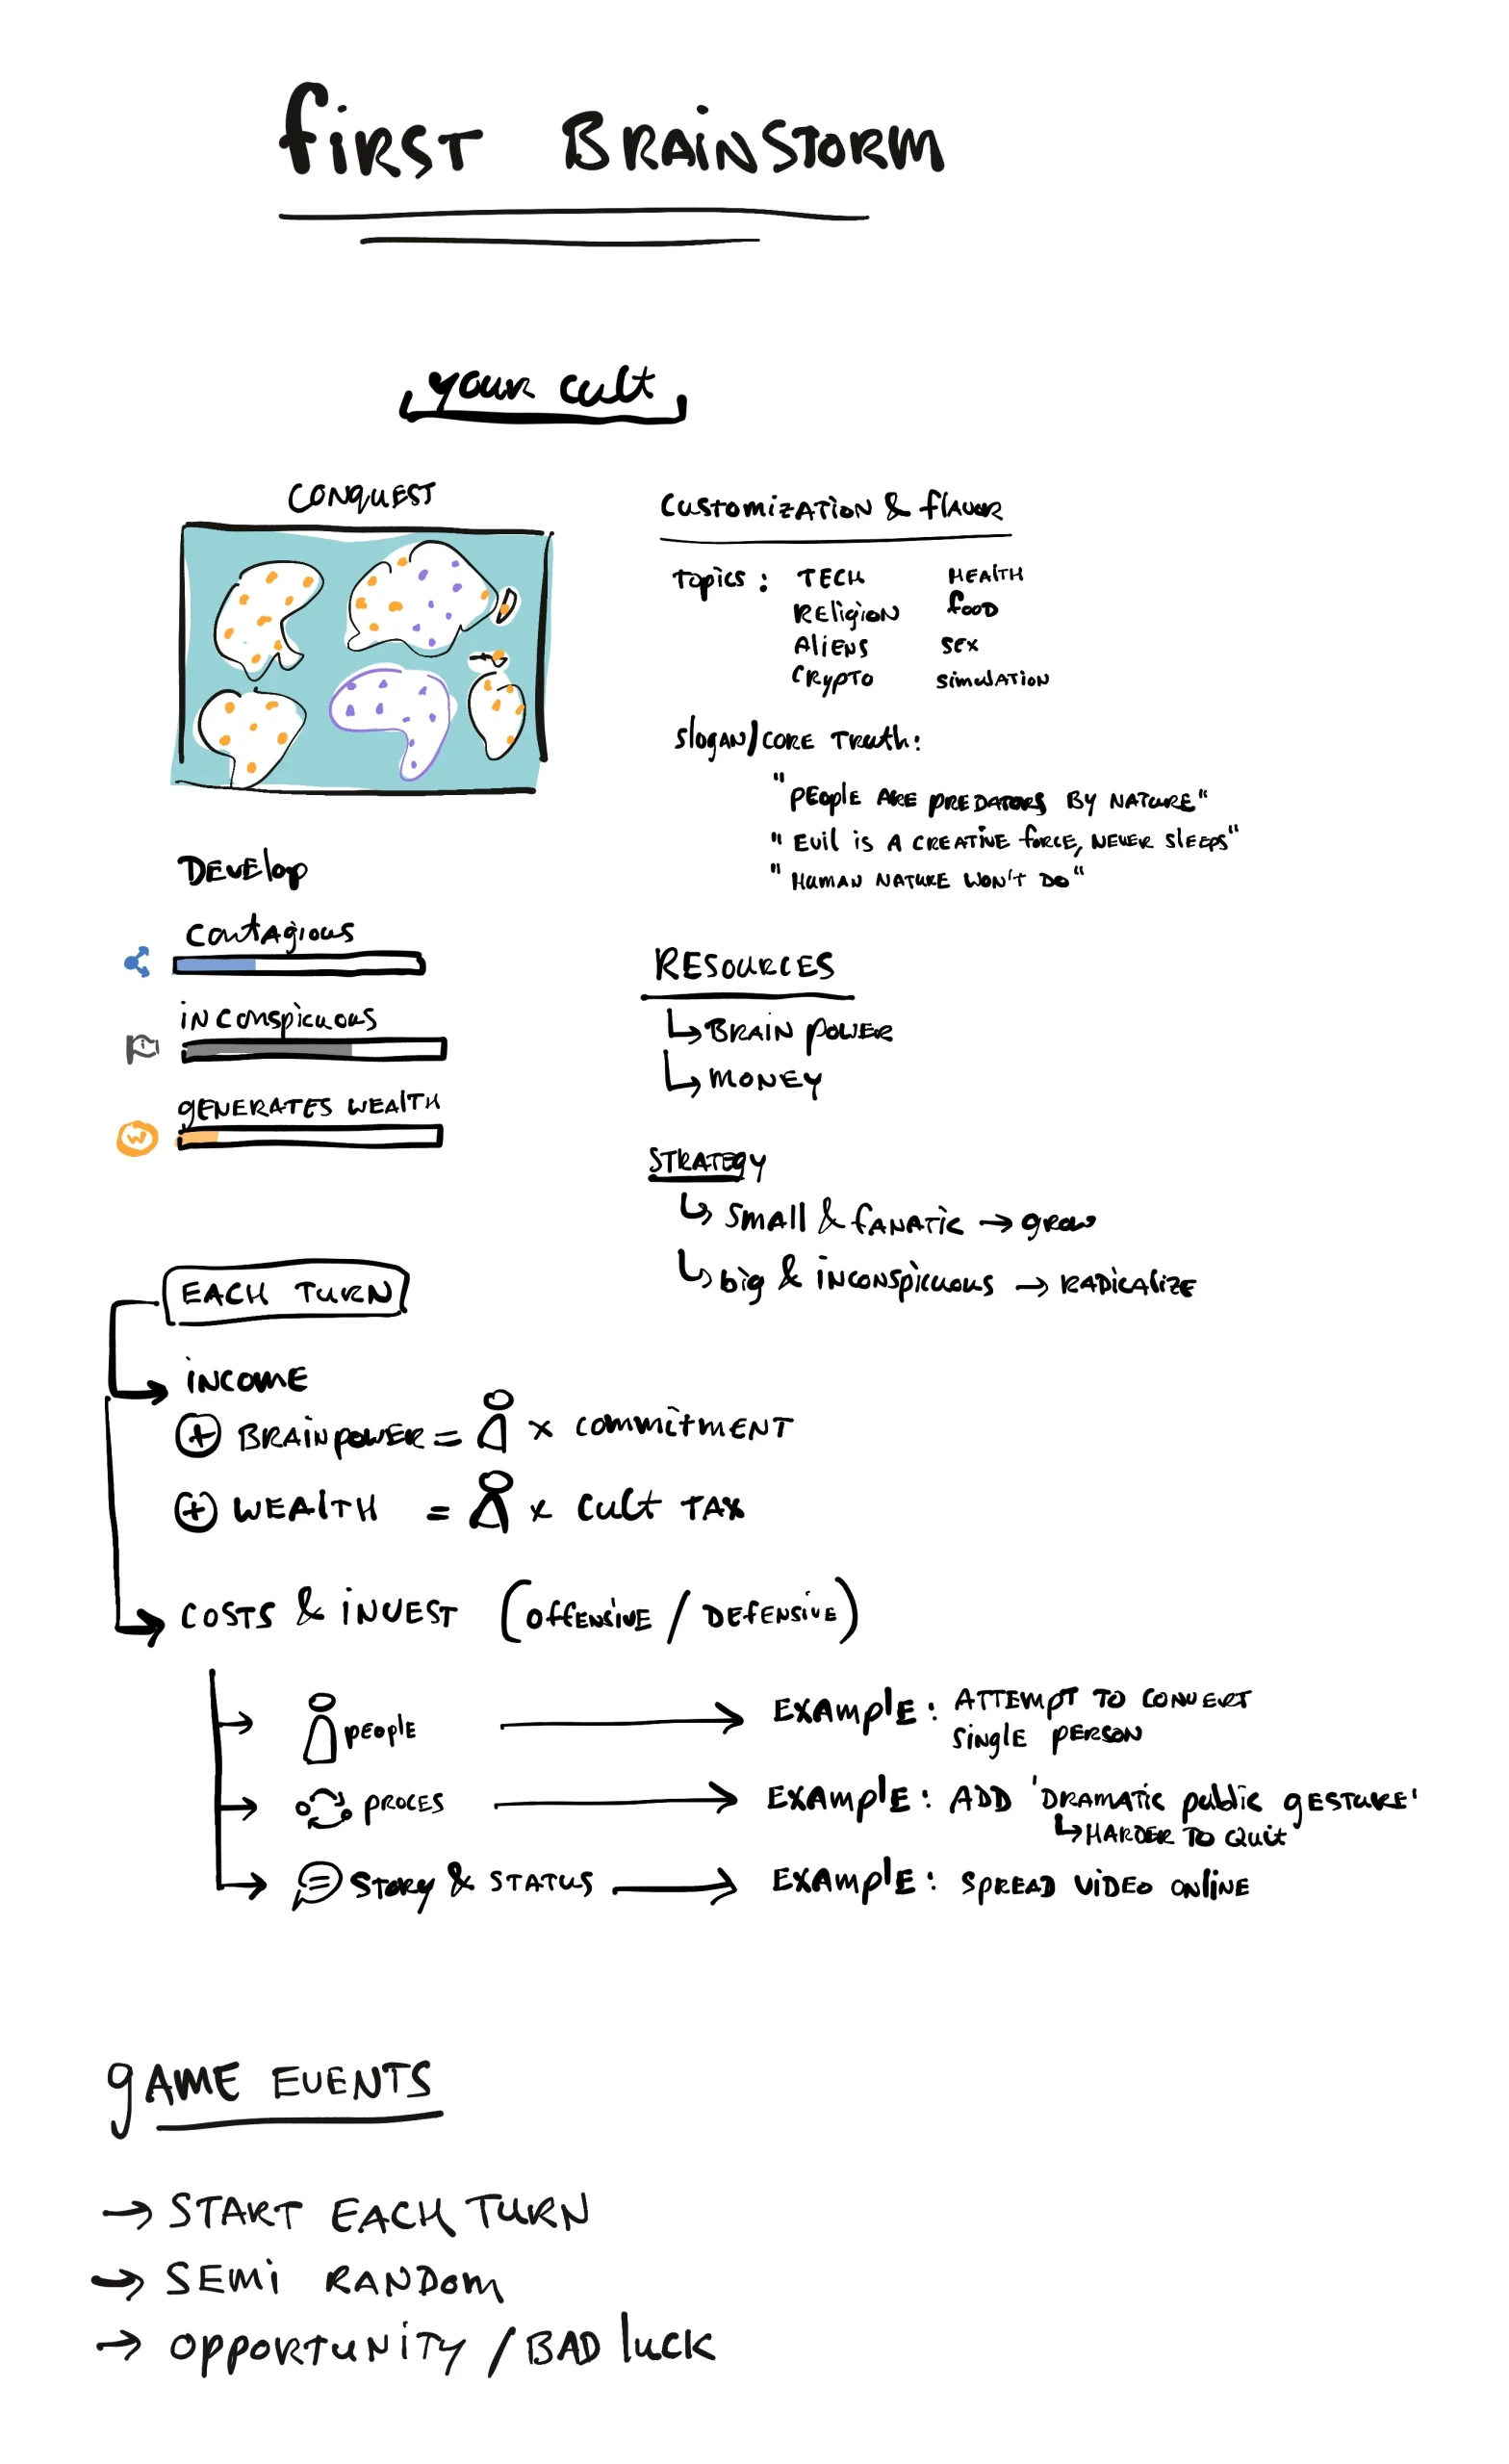 FIRST BRAINSTORM
your cult
CONQUEST
CUSTOMIZATION & FLAVOR
TOPICS: TECH HEALTH
RELIGION FOOD
ALIENS SEX
CRYPTO SIMULATION
SLOGAN/CORE TRUTH:
"PEOPLE ARE PREDATORS BY NATURE"
"EVIL IS A CREATIVE FORCE, NEVER SLEEPS"
"HUMAN NATURE WON'T DO"
DEVELOP
CONTAGIOUS
INCONSPICUOUS
GENERATES WEALTH
W
RESOURCES
BRAIN POWER
MONEY
STRATEGY
SMALL & FANATIC → GROW
BIG & INCONSPICUOUS → RADICALIZE
EACH TURN
INCOME
+ BRAINPOWER = x COMMITMENT
+ WEALTH = x CULT TAX
COSTS & INVEST (OFFENSIVE / DEFENSIVE)
PEOPLE → EXAMPLE: ATTEMPT TO CONVERT
SINGLE PERSON
PROCES → EXAMPLE: ADD 'DRAMATIC PUBLIC GESTURE'
HARDER TO QUIT
STORY & STATUS → EXAMPLE: SPREAD VIDEO ONLINE
GAME EVENTS
→ START EACH TURN
→ SEMI RANDOM
→ OPPORTUNITY / BAD LUCK